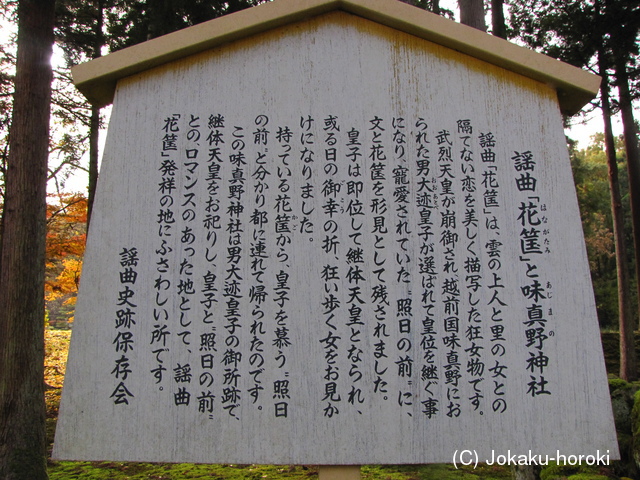 謡曲「花筺」と味真野神社
はながたみ
あじまの
謡曲「花筺」は、雲の上人と里の女との
隔てない恋を美しく描写した狂女物です。
武烈天皇が崩御され越前国味真野にお
られた男大迹皇子が選ばれて皇位を継ぐ事
になり、寵愛されていた〝照日の前〟に、
文と花筐を形見として残されました。
皇子は即位して継体天皇となられ、
或る日の御幸の折、狂い歩く女をお見か
けになりました。
持っている花筐から、皇子を慕う〝照日
の前〟と分かり都に連れて帰られたのです。
この味真野神社は男大迹皇子の御所跡で、
継体天皇をお祀りし、皇子と〝照日の前〟
とのロマンスのあった地として、謡曲
「花筐」発祥の地にふさわしい所です。
謡曲史跡保存会
(C) Jokaku-horoki